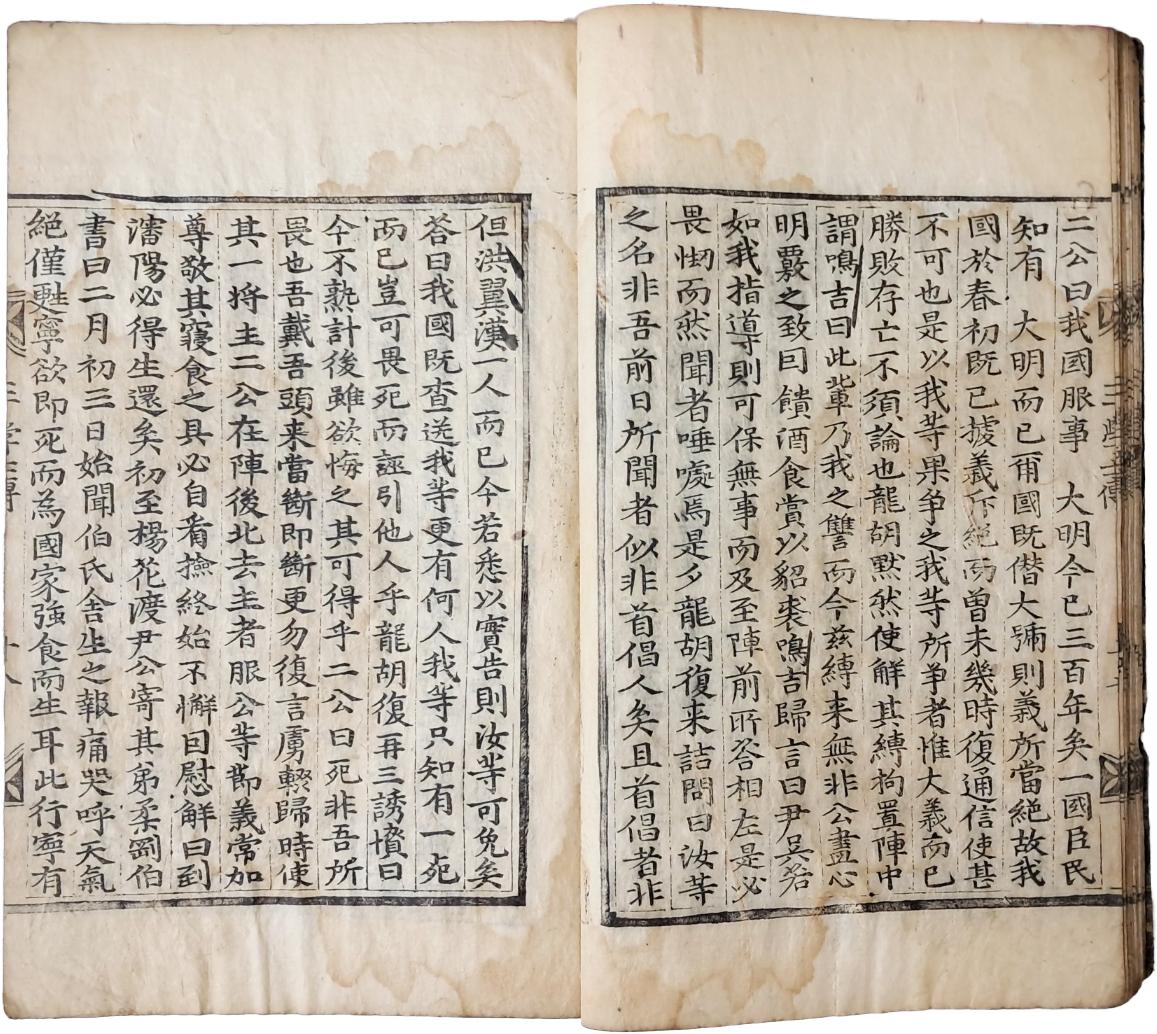 二公曰我國服事 大明今已三百年矣一國臣民
知有 大明而已爾國既僭大號則義所當絕故我
國於春初既已據義斥絕而曾未幾時復通信使甚
不可也是以我等果爭之我等所爭者惟大義而已
勝敗存亡不須論也龍胡黙然使解其縛拘置陣中
謂鳴吉曰此輩乃我之讐而今玆縛来無非公盡心
明覈之致曰饋酒食賞以貂裘鳴吉歸言曰尹吳若
如我指導則可保無事而及至陣前所答相左是必
畏㤼而然聞者唾罵焉是夕龍胡復来詰問曰汝等
之名非吾前日所聞者似非首倡人矣且首倡者非
但洪翼漢一人而已今若悉以實告則汝等可免矣
答曰我國既查送我等更有何人我等只知有一死
而已豈可畏死而誣引他人乎龍胡復再三誘憤曰
今不熟計後雖欲悔之其可得乎二公曰死非吾所
畏也吾戴吾頭来當斷即斷更勿復言虜輟歸時使
其一将主二公在陣後北去主者服公等節義常加
尊敬其寢食之具必自看撿終始不懈曰慰解曰到
瀋陽必得生還矣初至楊花渡尹公寄其弟柔劄伯
書曰二月初三日始聞伯氏舍生之報痛哭呼天氣
絕僅甦寧欲即死而為國家強食而生耳此行寧有
三學士傳
十八